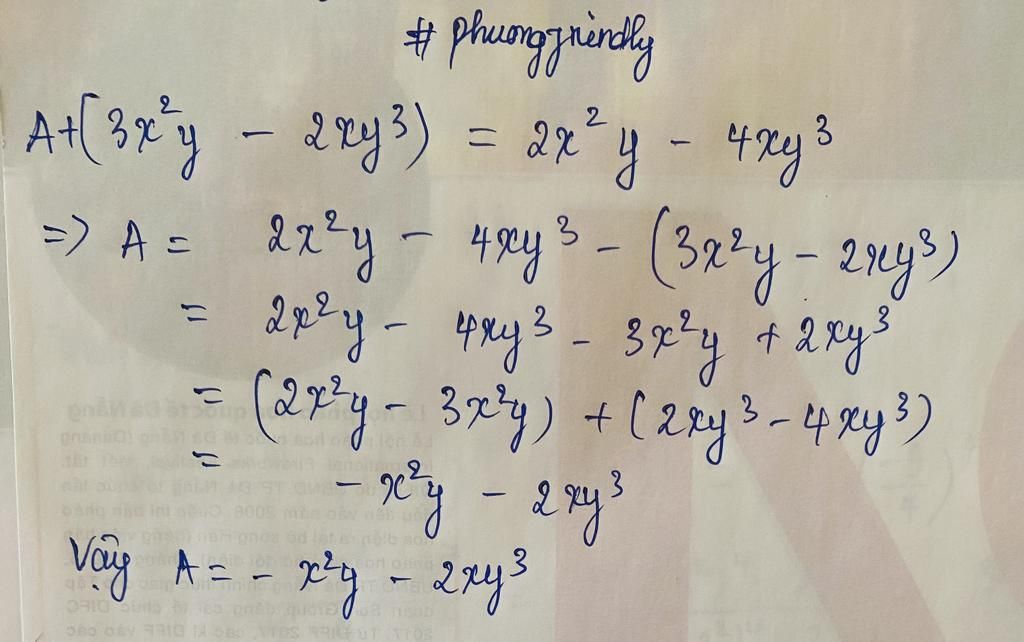 # phuongfriendly
A+(3x²y - 2xy³) = 2x²y - 4xy³
=> A = 2x²y - 4xy³ - (3x²y - 2xy³)
= 2x²y - 4xy³ - 3x²y + 2xy³
= (2x²y - 3x²y) + (2xy³ - 4xy³)
= -x²y - 2xy³
Vậy A = -x²y - 2xy³